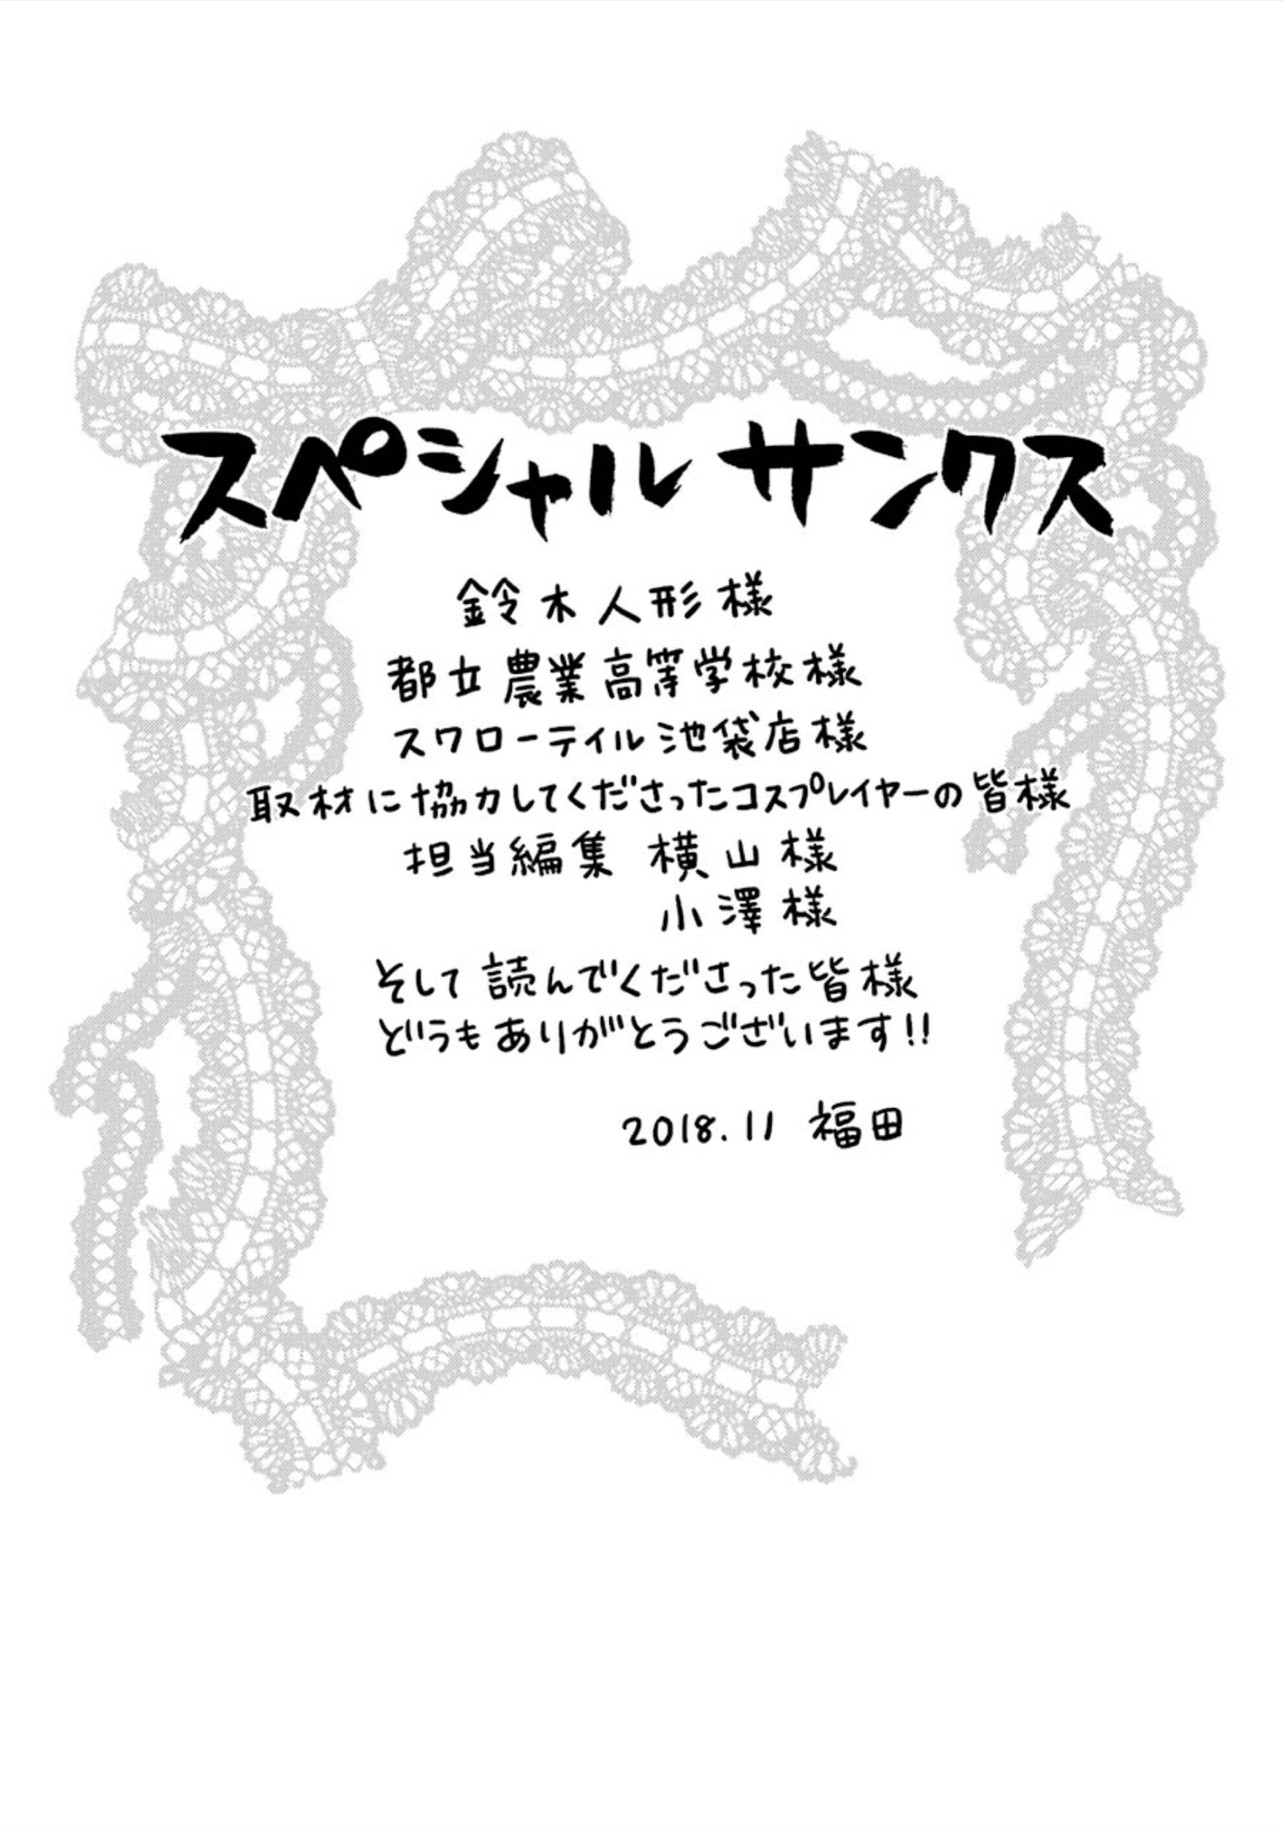 スペシャル サンクス
鈴木人形様
都立農業高等学校様
スワローテイル池袋店様
取材に協力してくださったコスプレイヤーの皆様
担当編集 横山様
小澤様
そして読んでくださった皆様
どうもありがとうございます!!
2018.11 福田